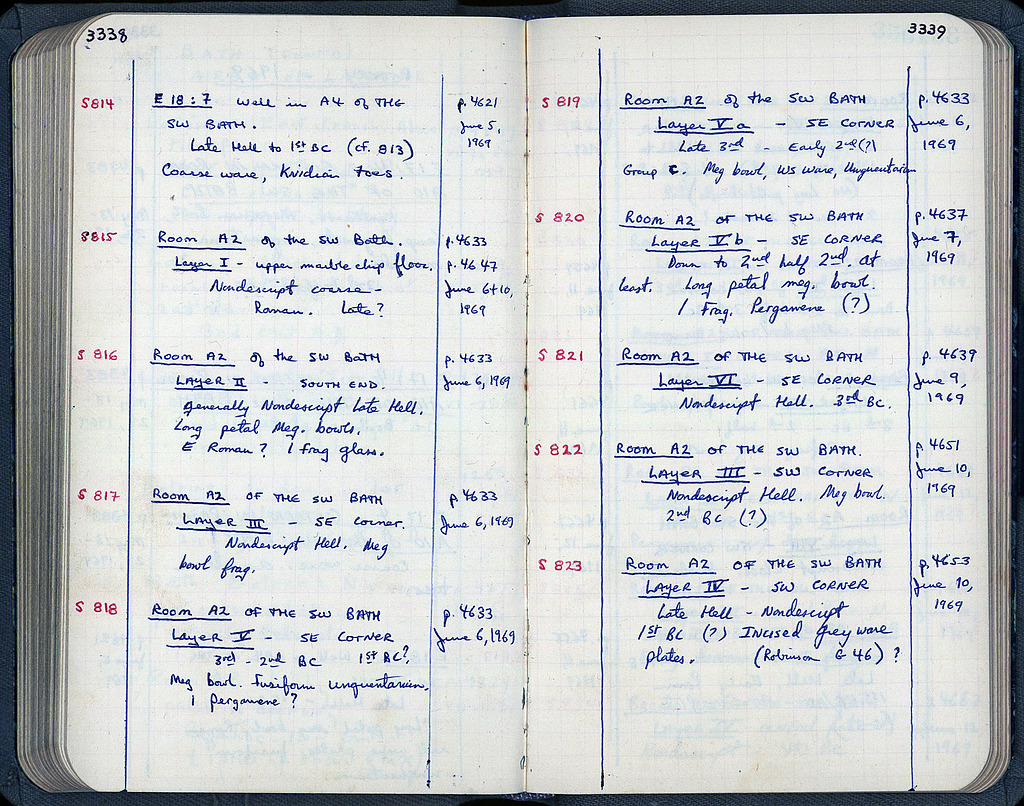 3338
S814 E 18 : 7 well in A4 of THE p. 4621
SW BATH. June 5,
Late Hell to 1st BC (cf. 813) 1969
Coarse ware, Knidian toes.
S815 Room A2 of the SW Bath. p. 4633
Layer I - upper marble chip floor. p. 4647
Nondescript coarse - June 6+10,
Roman. Late? 1969
S 816 Room A2 of the SW BATH p. 4633
LAYER II - SOUTH END. June 6, 1969
generally Nondescript Late Hell.
Long petal Meg. bowls.
E Roman? 1 frag glass.
S 817 Room A2 OF THE SW BATH p 4633
LAYER III - SE Corner. June 6, 1969
Nondescript Hell. Meg
bowl frag.
S 818 Room A2 OF THE SW BATH p. 4633
Layer V - SE CORNER June 6, 1969
3rd - 2nd BC 1st BC?
Meg bowl. Fusiform unguentarium.
1 Pergamene?
3339
S 819 Room A2 of the SW BATH p. 4633
Layer V a - SE CORNER June 6,
Late 3rd - Early 2nd (?) 1969
Group C. Meg bowl, WS ware, Unguentarium
S 820 Room A2 OF THE SW BATH p. 4637
Layer V b - SE CORNER June 7,
Down to 2nd half 2nd. at 1969
least. Long petal meg. bowl.
1 Frag. Pergamene (?)
S 821 Room A2 OF THE SW BATH p. 4639
Layer VI - SE CORNER June 9,
Nondescript Hell. 3rd BC. 1969
S 822 Room A2 OF THE SW BATH. p. 4651
LAYER III - SW CORNER June 10,
Nondescript Hell. Meg bowl. 1969
2nd BC (?)
S 823 Room A2 OF THE SW BATH p. 4653
LAYER IV - SW CORNER June 10,
Late Hell - Nondescript 1969
1st BC (?) Incised grey ware
plates. (Robinson G 46) ?